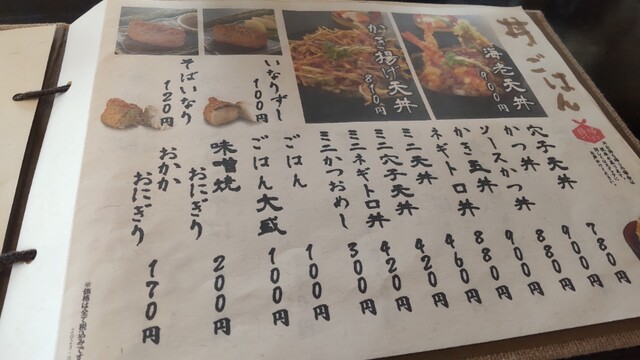 丼ごはん
海老天丼 900円
かき揚げ天丼 810円
いなりずし 100円
そばいなり 120円
穴子天丼 780円
かつ丼 900円
ソースかつ丼 880円
かき玉丼 900円
ネギトロ丼 880円
ミニ天丼 460円
ミニ穴子天丼 420円
ミニネギトロ丼 420円
ミニかつおめし 300円
ごはん 100円
ごはん大盛 100円
味噌焼
おにぎり 200円
おかか
おにぎり 170円
※価格は全て税込みです